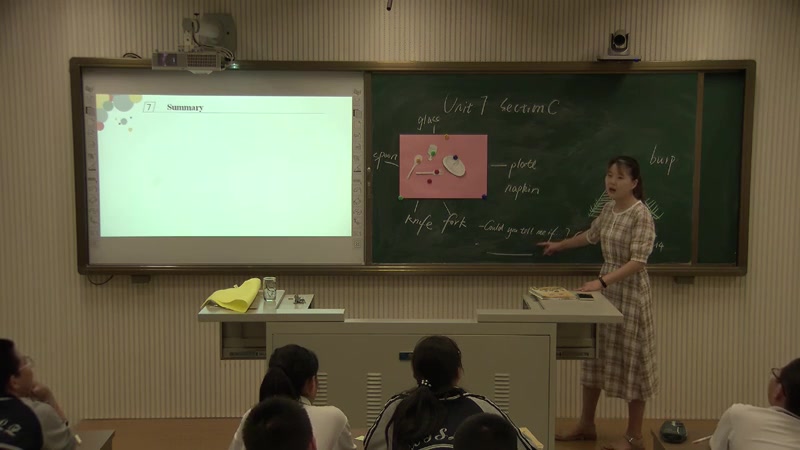 7 Summary
Unit 7 Section C
glass
spoon
plate
napkin
knife fork
burp
-Could you tell me if ?